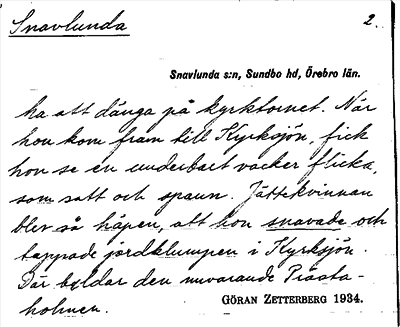 Snavlunda
2.
Snavlunda s:n, Sundbo hd, Örebro län.
ha att dänga på kyrktornet. När
hon kom fram till Kyrksjön, fick
hon se en underbart vacker flicka,
som satt och spann. Jättekvinnan
blev så häpen, att hon snavade och
tappade jordklumpen i Kyrksjön.
Där bildar den nuvarande Prästa-
holmen.
GÖRAN ZETTERBERG 1934.